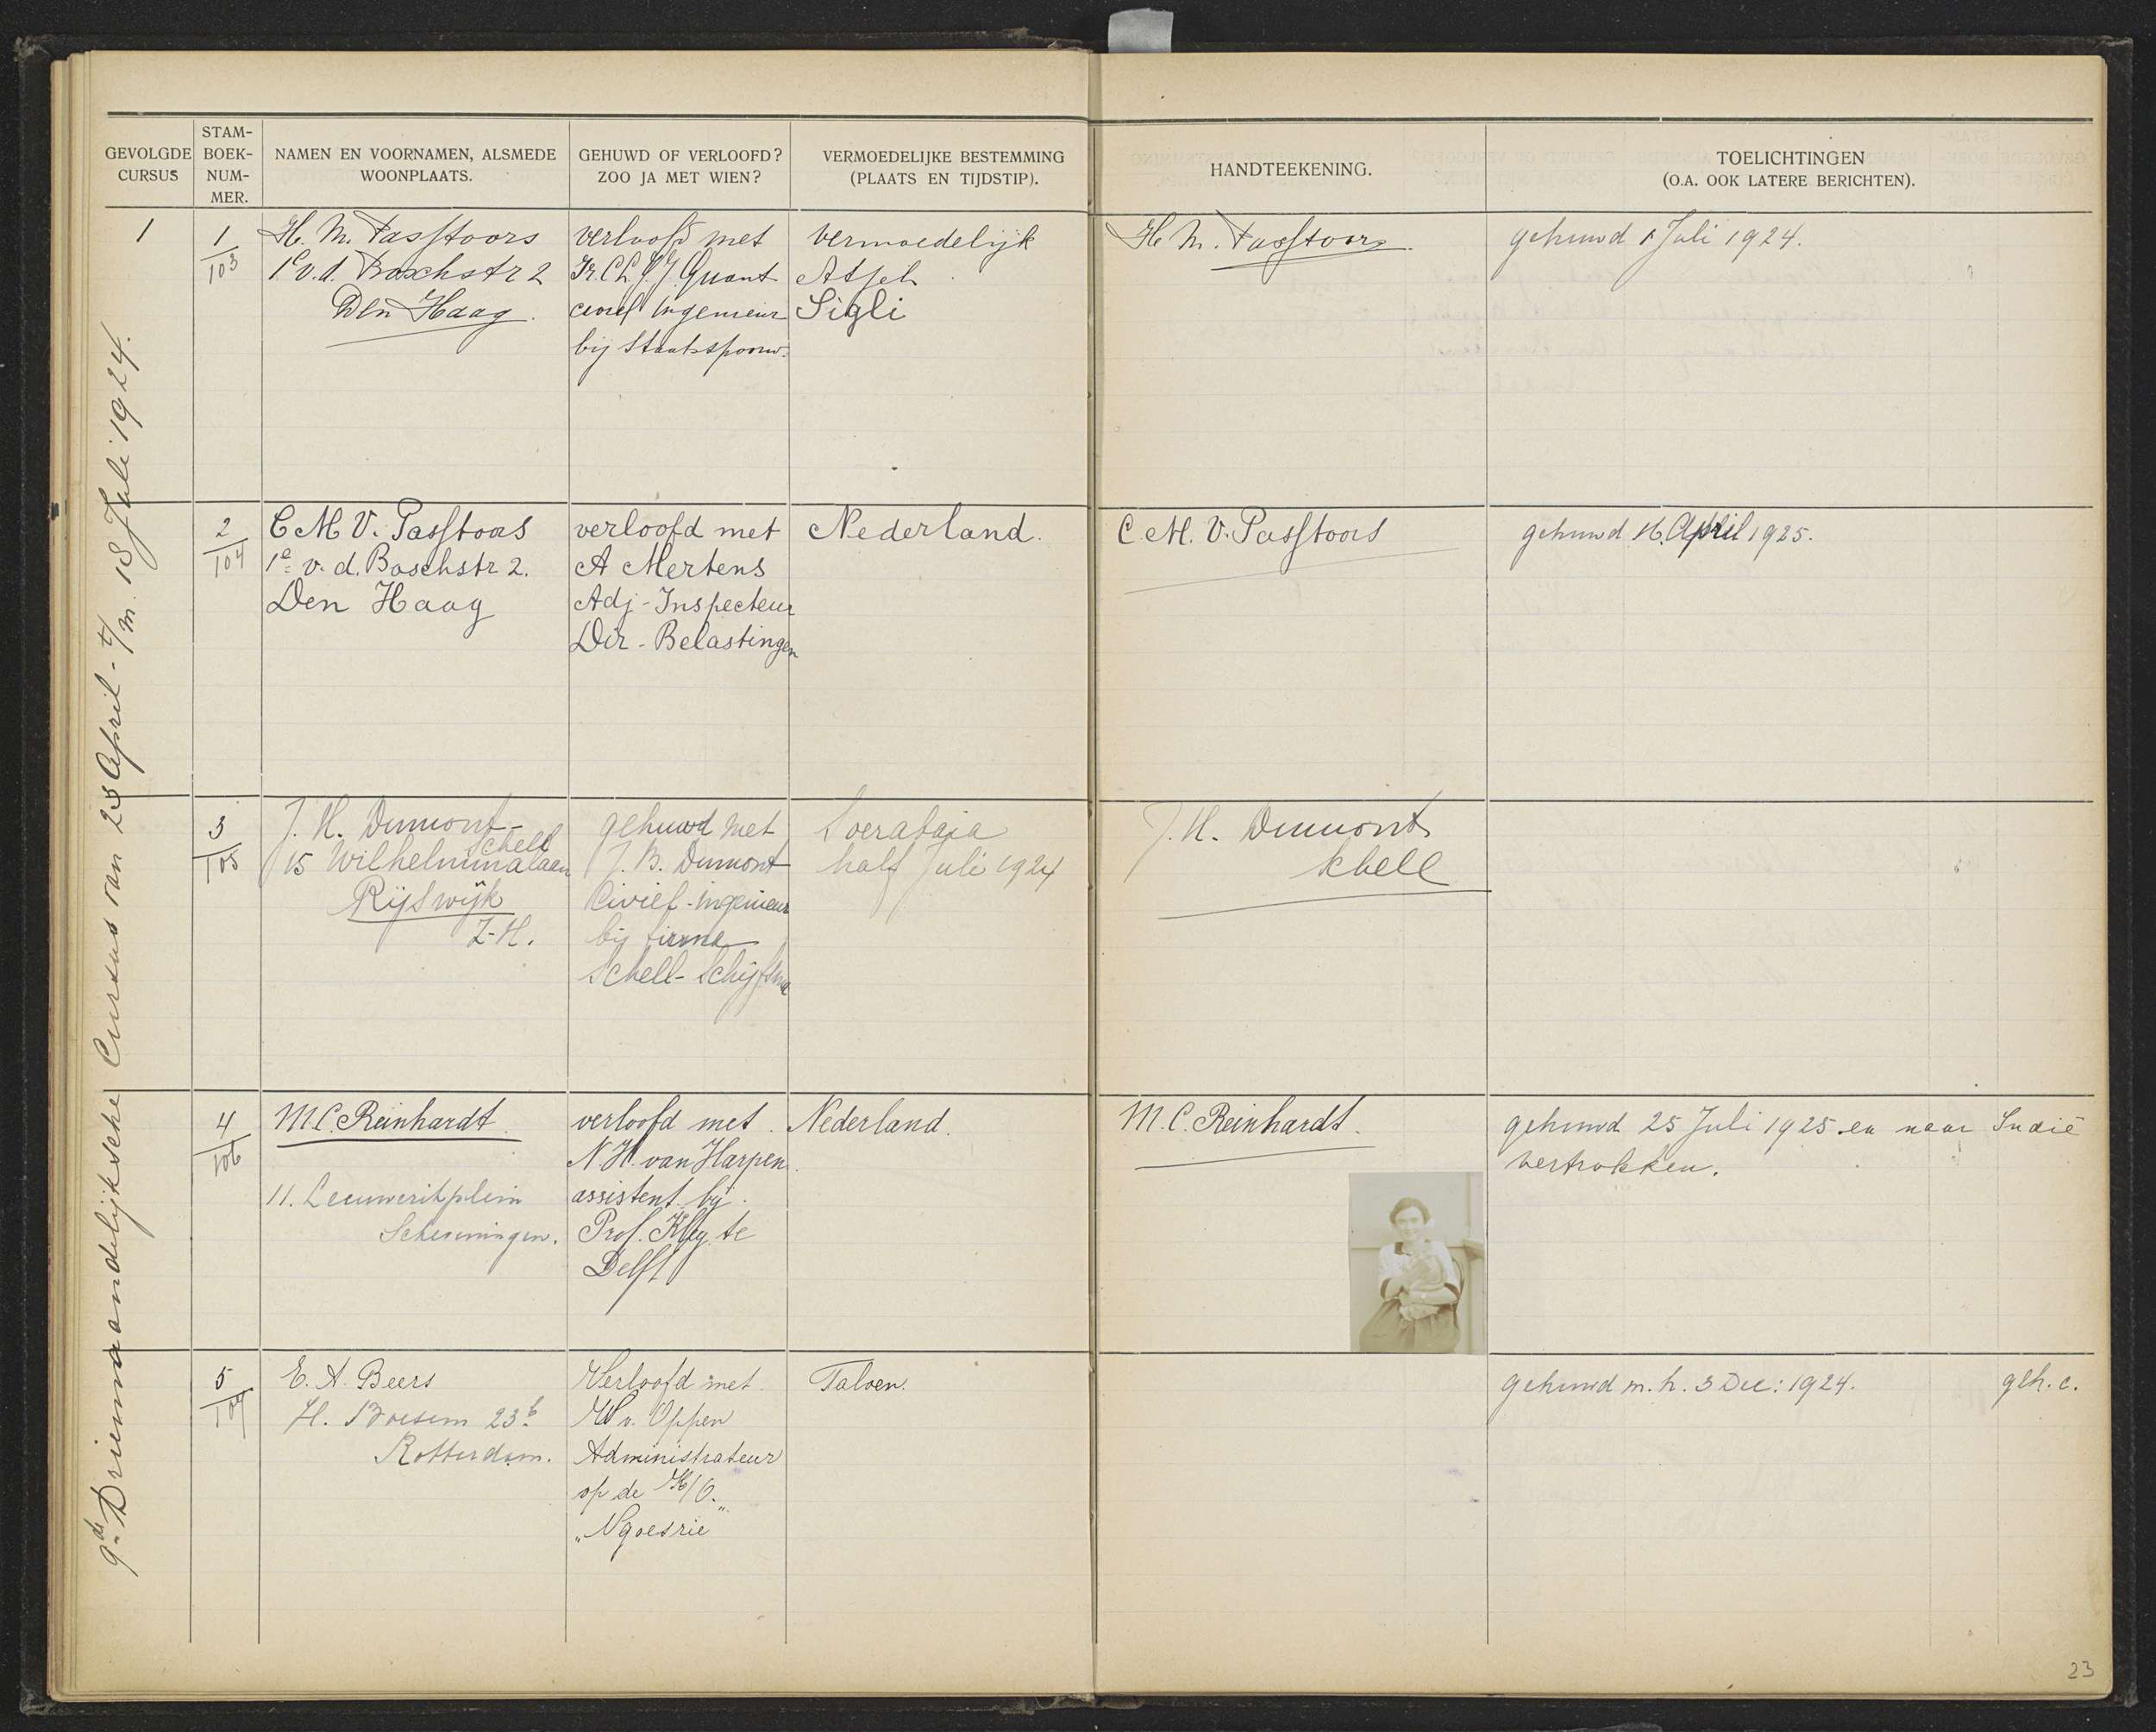 GEVOLGDE
CURSUS
STAM-
BOEK-
NUM-
MER.
NAMEN EN VOORNAMEN, ALSMEDE
WOONPLAATS.
GEHUWD OF VERLOOFD?
ZOO JA MET WIEN?
VERMOEDELIJKE BESTEMMING
(PLAATS EN TIJDSTIP).
HANDTEEKENING.
TOELICHTINGEN
(O.A. OOK LATERE BERICHTEN).
9de Driemaandelijksche Cursus van 28 April - t/m. 18 Juli 1924.
1
1
103
H. M. Passtoors
1e v. d. Boschstr 2
Den Haag.
verloofd met
Ir. Ch. Quant
civiel ingenieur
bij Staatsspoorw.
vermoedelijk
Atjeh
Sigli
H. M. Passtoors.
gehuwd 1 Juli 1924.
2
104
C M V. Passtoors
1e v. d. Boschstr 2.
Den Haag
verloofd met
A Mertens
Adj-Inspecteur
Dir-Belastingen
Nederland.
C. M. V. Passtoors
gehuwd 16 April 1925.
3
105
J. H. Dumont-
Schell
15 Wilhelminalaan
Rijswijk
Z-H.
gehuwd met
J. B. Dumont
Civiel-ingenieur
bij firma
Schell-Schijfsma
Soerabaia
half Juli 1924
J. H. Dumont
Schell
4
106
M. C. Reinhardt.
11. Leeuwerikplein
Scheveningen.
verloofd met
N. H. van Harpen.
assistent bij
Prof. Kley te
Delft
Nederland.
M. C. Reinhardt.
gehuwd 25 Juli 1925 en naar Indië
vertrokken.
5
107
E. A. Beers
H. Boezem 23b
Rotterdam.
Verloofd met
W v. Oppen
Administrateur
op de K/O.
"Ngoesrie"
Taloen.
gehuwd m. h. 3 Dec: 1924.
geh. c.
23